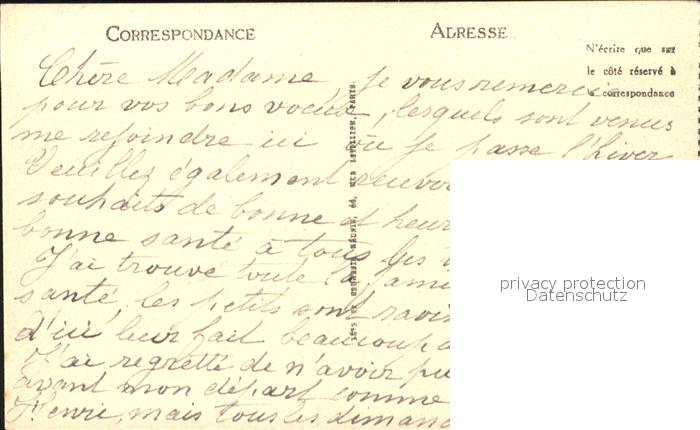 CORRESPONDANCE
ADRESSE
N'écrire que sur
le côté réservé à
correspondance
Chère Madame je vous remercie
pour vos bons voeux, lesquels sont venus
me rejoindre ici où je passe l'hiver
Veuillez également recevoir
souhaits de bonne et heur
bonne santé à tous les
J'ai trouvé toute la fami
santé, les petits sont ravi
d'ici leur fait beaucoup d
J'ai regretté de n'avoir pu
avant mon départ comme
J'envie, mais tous les diman
PARIS
privacy protection
Datenschutz